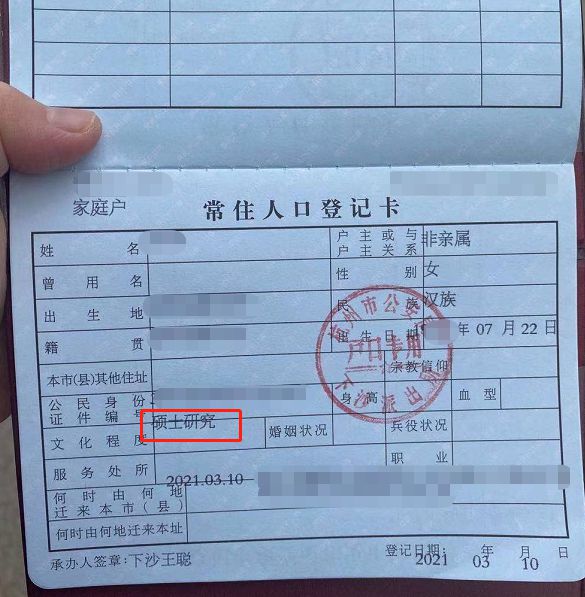 家庭户
常住人口登记卡
姓名 户主或与户主关系 非亲属
曾用名 性别 女
出生地 民族 汉族
籍贯 出生日期 年07月22日
本市(县)其他住址 宗教信仰
公民身份证件编号 身高 血型
文化程度 硕士研究 婚姻状况 兵役状况
服务处所 职业
何时由何地迁来本市(县) 2021.03.10
何时由何地迁来本址
承办人签章:下沙王聪 登记日期: 2021年03月10日
杭州市公安
户口专用
下沙派出所